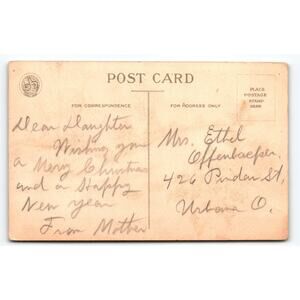 POST CARD
FOR CORRESPONDENCE
FOR ADDRESS ONLY
PLACE
POSTAGE
STAMP
HERE
Dear Daughter
Wishing you
a Merry Christmas
and a Happy
New year
From Mother
Mrs. Ethel
426 St,
Urbana O.